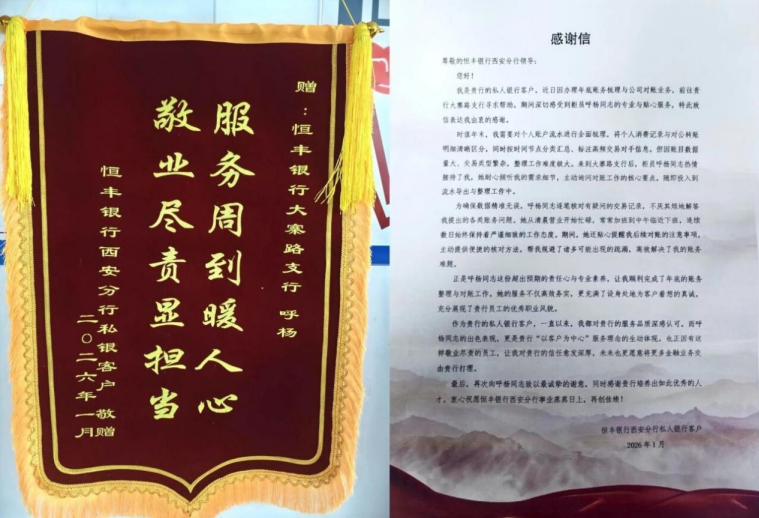 赠：恒丰银行大寨路支行 呼杨
服务周到暖人心
敬业尽责显担当
恒丰银行西安分行私银客户 敬赠
二〇二六年一月
感谢信
尊敬的恒丰银行西安分行领导：
您好！
我是贵行的私人银行客户，近日因办理年底账务梳理与公司对账业务，前往贵
行大寨路支行寻求帮助。期间深切感受到柜员呼杨同志的专业与贴心服务，特此致
信表达我由衷的感谢。
时值年末，我需要对个人账户流水进行全面梳理，将个人消费记录与对公转账
明细清晰区分，同时按时间节点分类汇总、标注高频交易对手信息。但因账目数据
量大、交易类型繁杂，整理工作难度极大。来到大寨路支行后，柜员呼杨同志热情
接待了我，她耐心倾听我的需求细节，主动询问对账工作的核心要点，随即投入到
流水导出与整理工作中。
为确保数据精准无误，呼杨同志逐笔核对有疑问的交易记录，不厌其烦地解答
我提出的各类账务问题。她从清晨营业开始忙碌，常常加班到中午临近下班，连续
数日始终保持着严谨细致的工作态度。期间，她还贴心提醒我后续对账的注意事项，
主动提供便捷的核对方法，帮我规避了诸多可能出现的疏漏，高效解决了我的账务
难题。
正是呼杨同志这份超出预期的责任心与专业素养，让我顺利完成了年底的账务
整理与对账工作。她的服务不仅高效务实，更充满了设身处地为客户着想的真诚，
充分展现了贵行员工的优秀职业风貌。
作为贵行的私人银行客户，一直以来，我都对贵行的服务品质深感认可。而呼
杨同志的出色表现，更是贵行“以客户为中心”服务理念的生动体现，也正因有这
样敬业尽责的员工，让我对贵行的信任愈发深厚，未来也更愿意将更多金融业务交
由贵行打理。
最后，再次向呼杨同志致以最诚挚的谢意，同时感谢贵行培养出如此优秀的人
才。衷心祝愿恒丰银行西安分行事业蒸蒸日上，再创佳绩！
恒丰银行西安分行私人银行客户
2026年1月